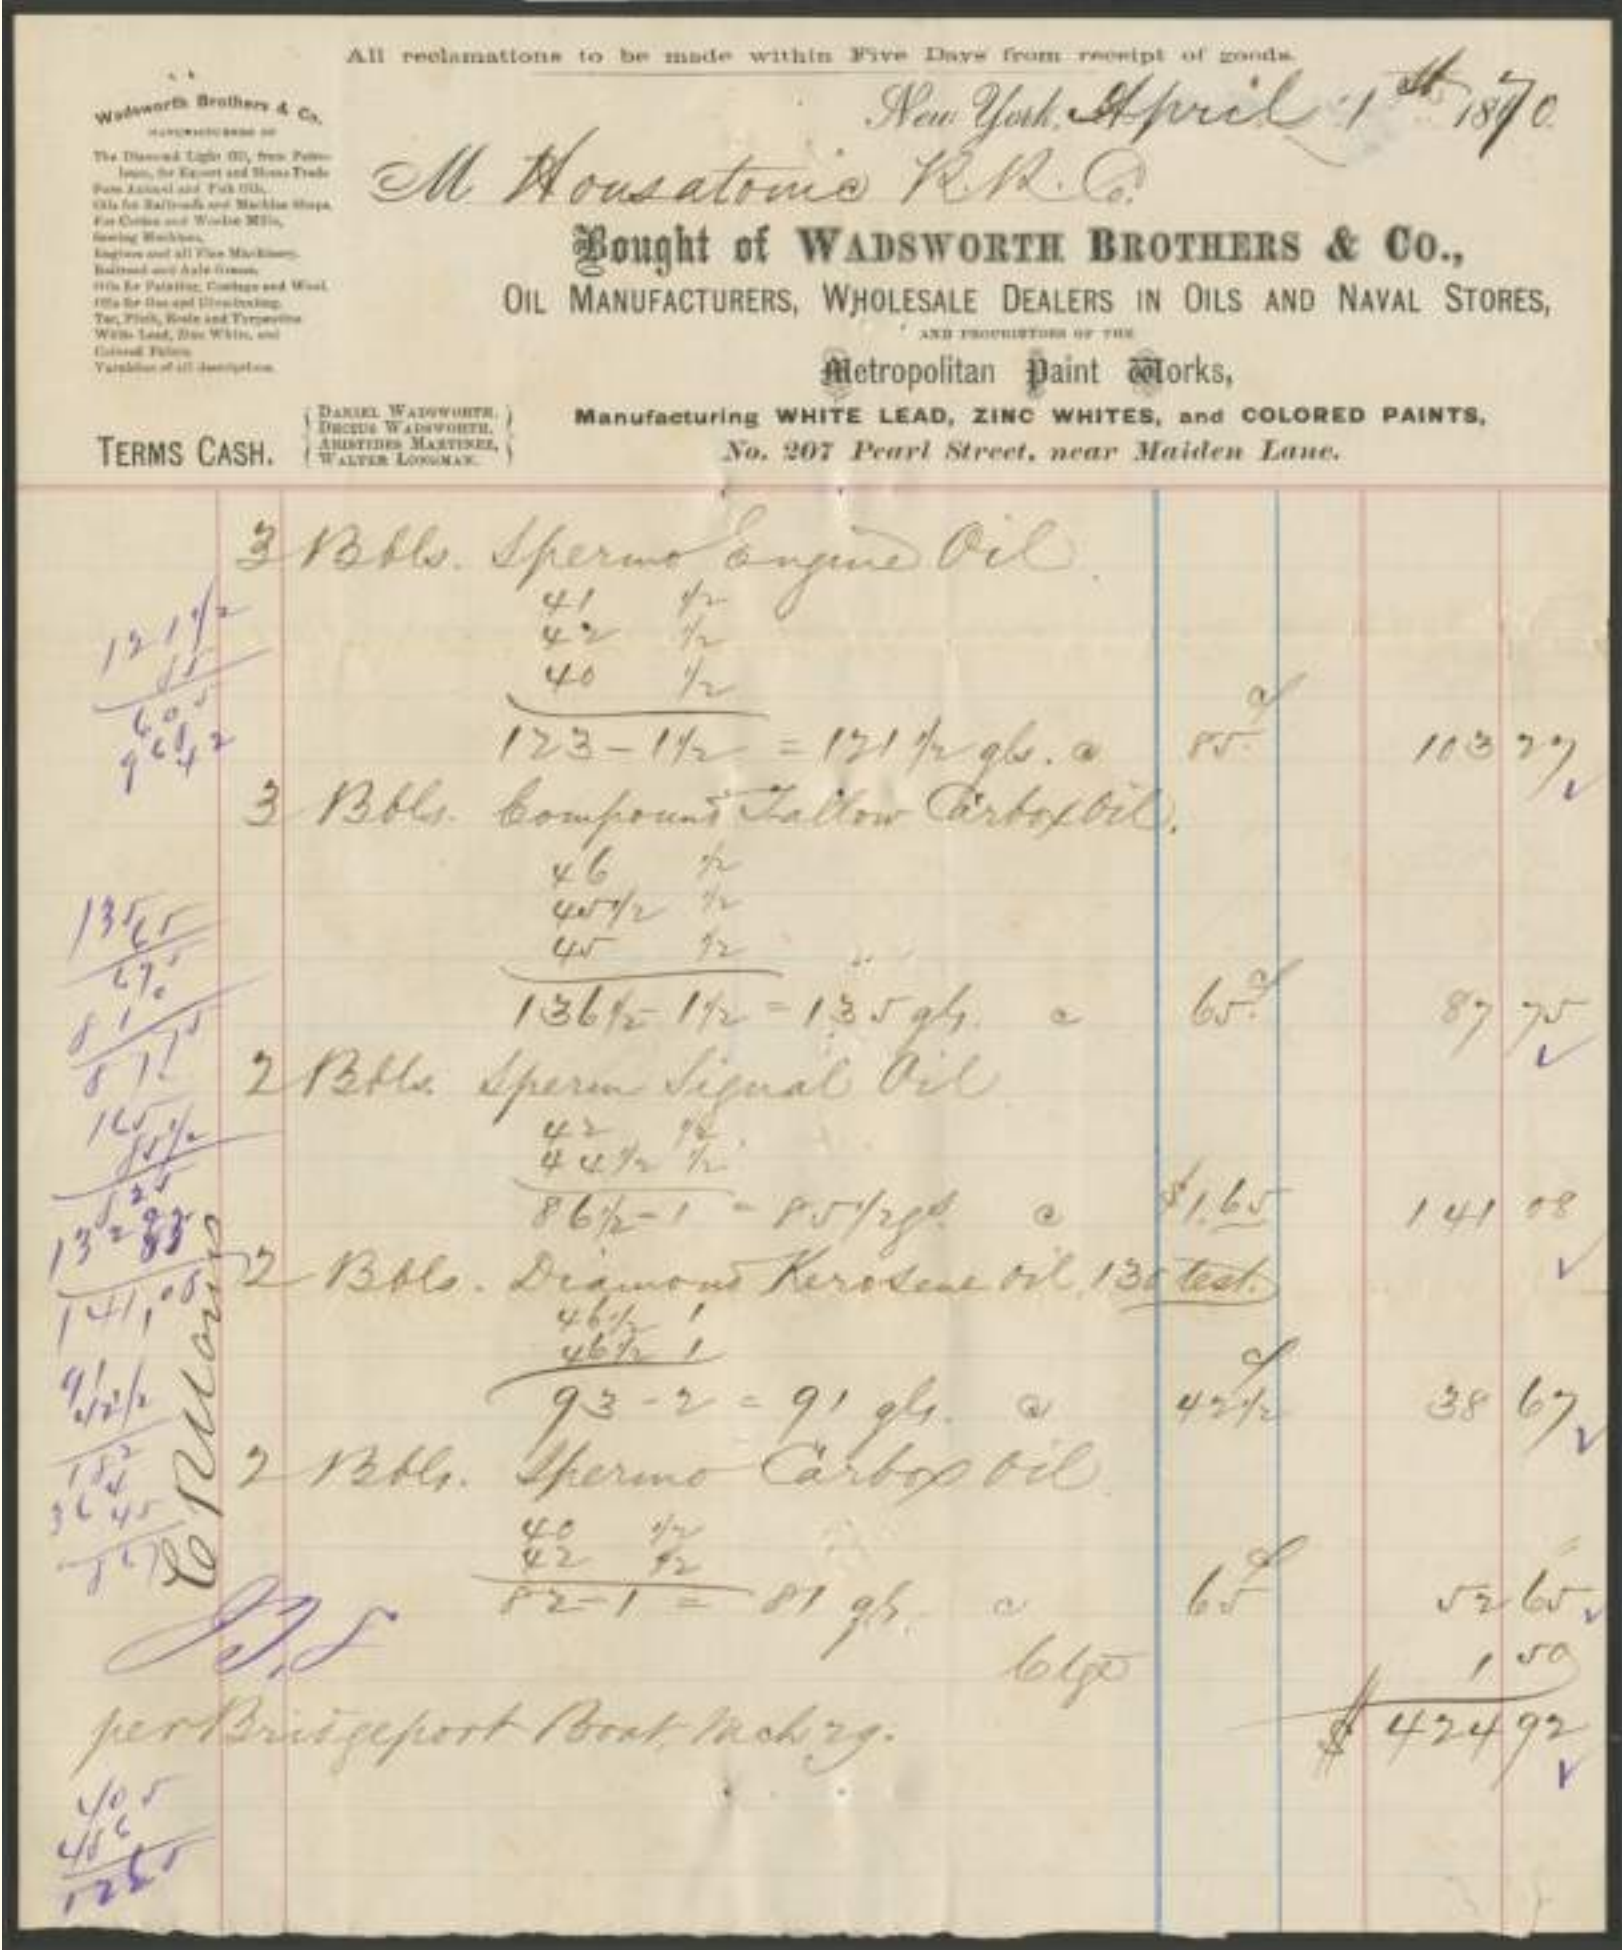 All reclamations to be made within Five Days from receipt of goods.
New York, April 1st 1870.
Wadsworth Brothers & Co.
MANUFACTURERS OF
The Diamond Light Oil, from Petro-
leum, for Export and Home Trade
Pure Animal and Fish Oils,
Oils for Railroads and Machine Shops,
For Cotton and Woolen Mills,
Sewing Machines,
Engines and all Fine Machinery.
Railroad and Axle Grease,
Oils for Painting, Cordage and Wool.
Oils for Gas and Illuminating.
Tar, Pitch, Rosin and Turpentine
White Lead, Zinc White, and
Colored Paints
Varnishes of all descriptions.
M Housatonic R.R. Co.
Bought of WADSWORTH BROTHERS & CO.,
OIL MANUFACTURERS, WHOLESALE DEALERS IN OILS AND NAVAL STORES,
AND PROPRIETORS OF THE
Metropolitan Paint Works,
Manufacturing WHITE LEAD, ZINC WHITES, and COLORED PAINTS,
No. 207 Pearl Street, near Maiden Lane.
TERMS CASH.
DANIEL WADSWORTH.
DECIUS WADSWORTH.
ARISTIDES MARTINEZ,
WALTER LONGMAN.
3 Bbls. Spermo Engine Oil
41 1/2
42 1/2
40 1/2
123 - 1 1/2 = 121 1/2 gls. @ 85 103 27
3 Bbls. Compound Tallow Carbox Oil.
46 1/2
45 1/2 1/2
45 1/2
136 1/2 - 1 1/2 = 135 gls. @ 65 87 75
2 Bbls. Sperm Signal Oil
42 1/2
44 1/2 1/2
86 1/2 - 1 = 85 1/2 gls @ $1.65 141 08
2 Bbls. Diamond Kerosene Oil, 130 test.
46 1/2 1
46 1/2 1
93 - 2 = 91 gls. @ 42 1/2 38 67
2 Bbls. Spermo Carbox Oil
40 1/2
42 1/2
82 - 1 = 81 gls. @ 65 52 65
Ctge 1 50
$ 424 92
per Bridgeport Boat, Mch 29.
121 1/2
85
605
968
42
135
65
675
810
165
85 1/2
825
1320
141,08
91
42 1/2
182
364
45
405
486